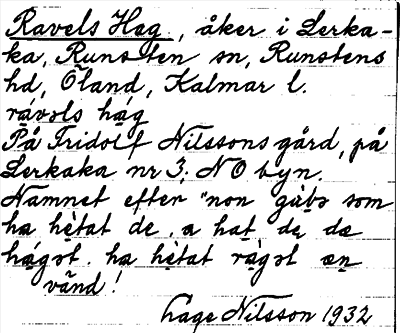 Ravels Hag., åker i Lerka-
ka, Runsten sn, Runstens
hd, Öland, Kalmar l.
rávəls hág
På Fridolf Nilssons gård, på
Lerkaka nr 3. NO byn.
Namnet efter "non gùbə som
ha hètat de, a hat dą dæ
hágət. ha hètat rágət æn
vänd!
Åage Nilsson 1932